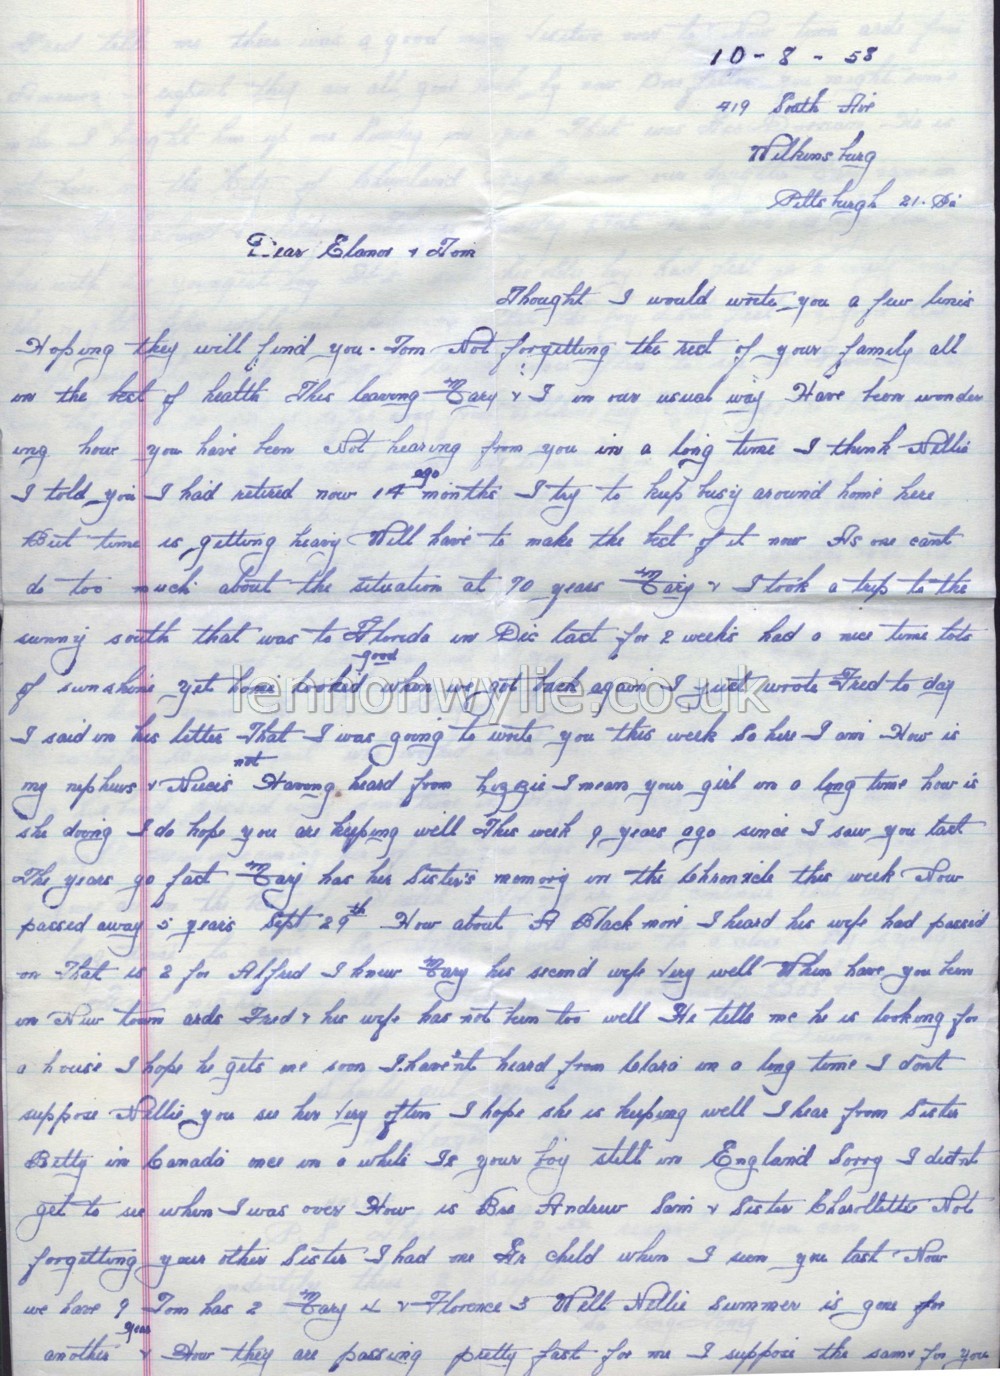 10 - 8 - 58
419 South Ave
Wilkinsburg
Pittsburgh 21. Pa
Dear Elanor & Tom
Thought I would write you a few lines
Hoping they will find you - Tom Not forgetting the rest of your family all
in the best of health This leaving Mary & I in our usual way Have been wonder
ing how you have been Not hearing from you in a long time I think Nellie
I told you I had retired now 14 months ago I try to keep busy around home here
But time is getting heavy Will have to make the best of it now As one cant
do too much about the situation at 70 years Mary & I took a trip to the
sunny south that was to Florida in Dec last for 2 weeks had a nice time lots
of sunshine yet home looked good when we got back again I just wrote Fred to day
lennonwylie.co.uk
I said in his letter That I was going to write you this week So here I am How is
my nephews & Nieces not Having heard from Lizzie I mean your girl in a long time how is
she doing I do hope you are keeping well This week 9 years ago since I saw you last
The years go fast Mary has her Sister's memory in the Chronicle this week Now
passed away 5 years Sept 29th How about A Blackmore I heard his wife had passed
on That is 2 for Alfred I knew Mary his second wife very well When have you been
in New town ards Fred & his wife has not been too well He tells me he is looking for
a house I hope he gets one soon I haven't heard from Clara in a long time I don't
suppose Nellie you see her very often I hope she is keeping well I hear from Sister
Betty in Canada once in a while Is your boy still in England Sorry I didnt
get to see when I was over How is Bro Andrew Sam & Sister Charollette Not
forgetting your other Sister I had one Gr child when I seen you last Now
we have 9 Tom has 2 Mary 4 & Florence 3 Well Nellie Summer is gone for
another year & How they are passing pretty fast for me I suppose the same for you